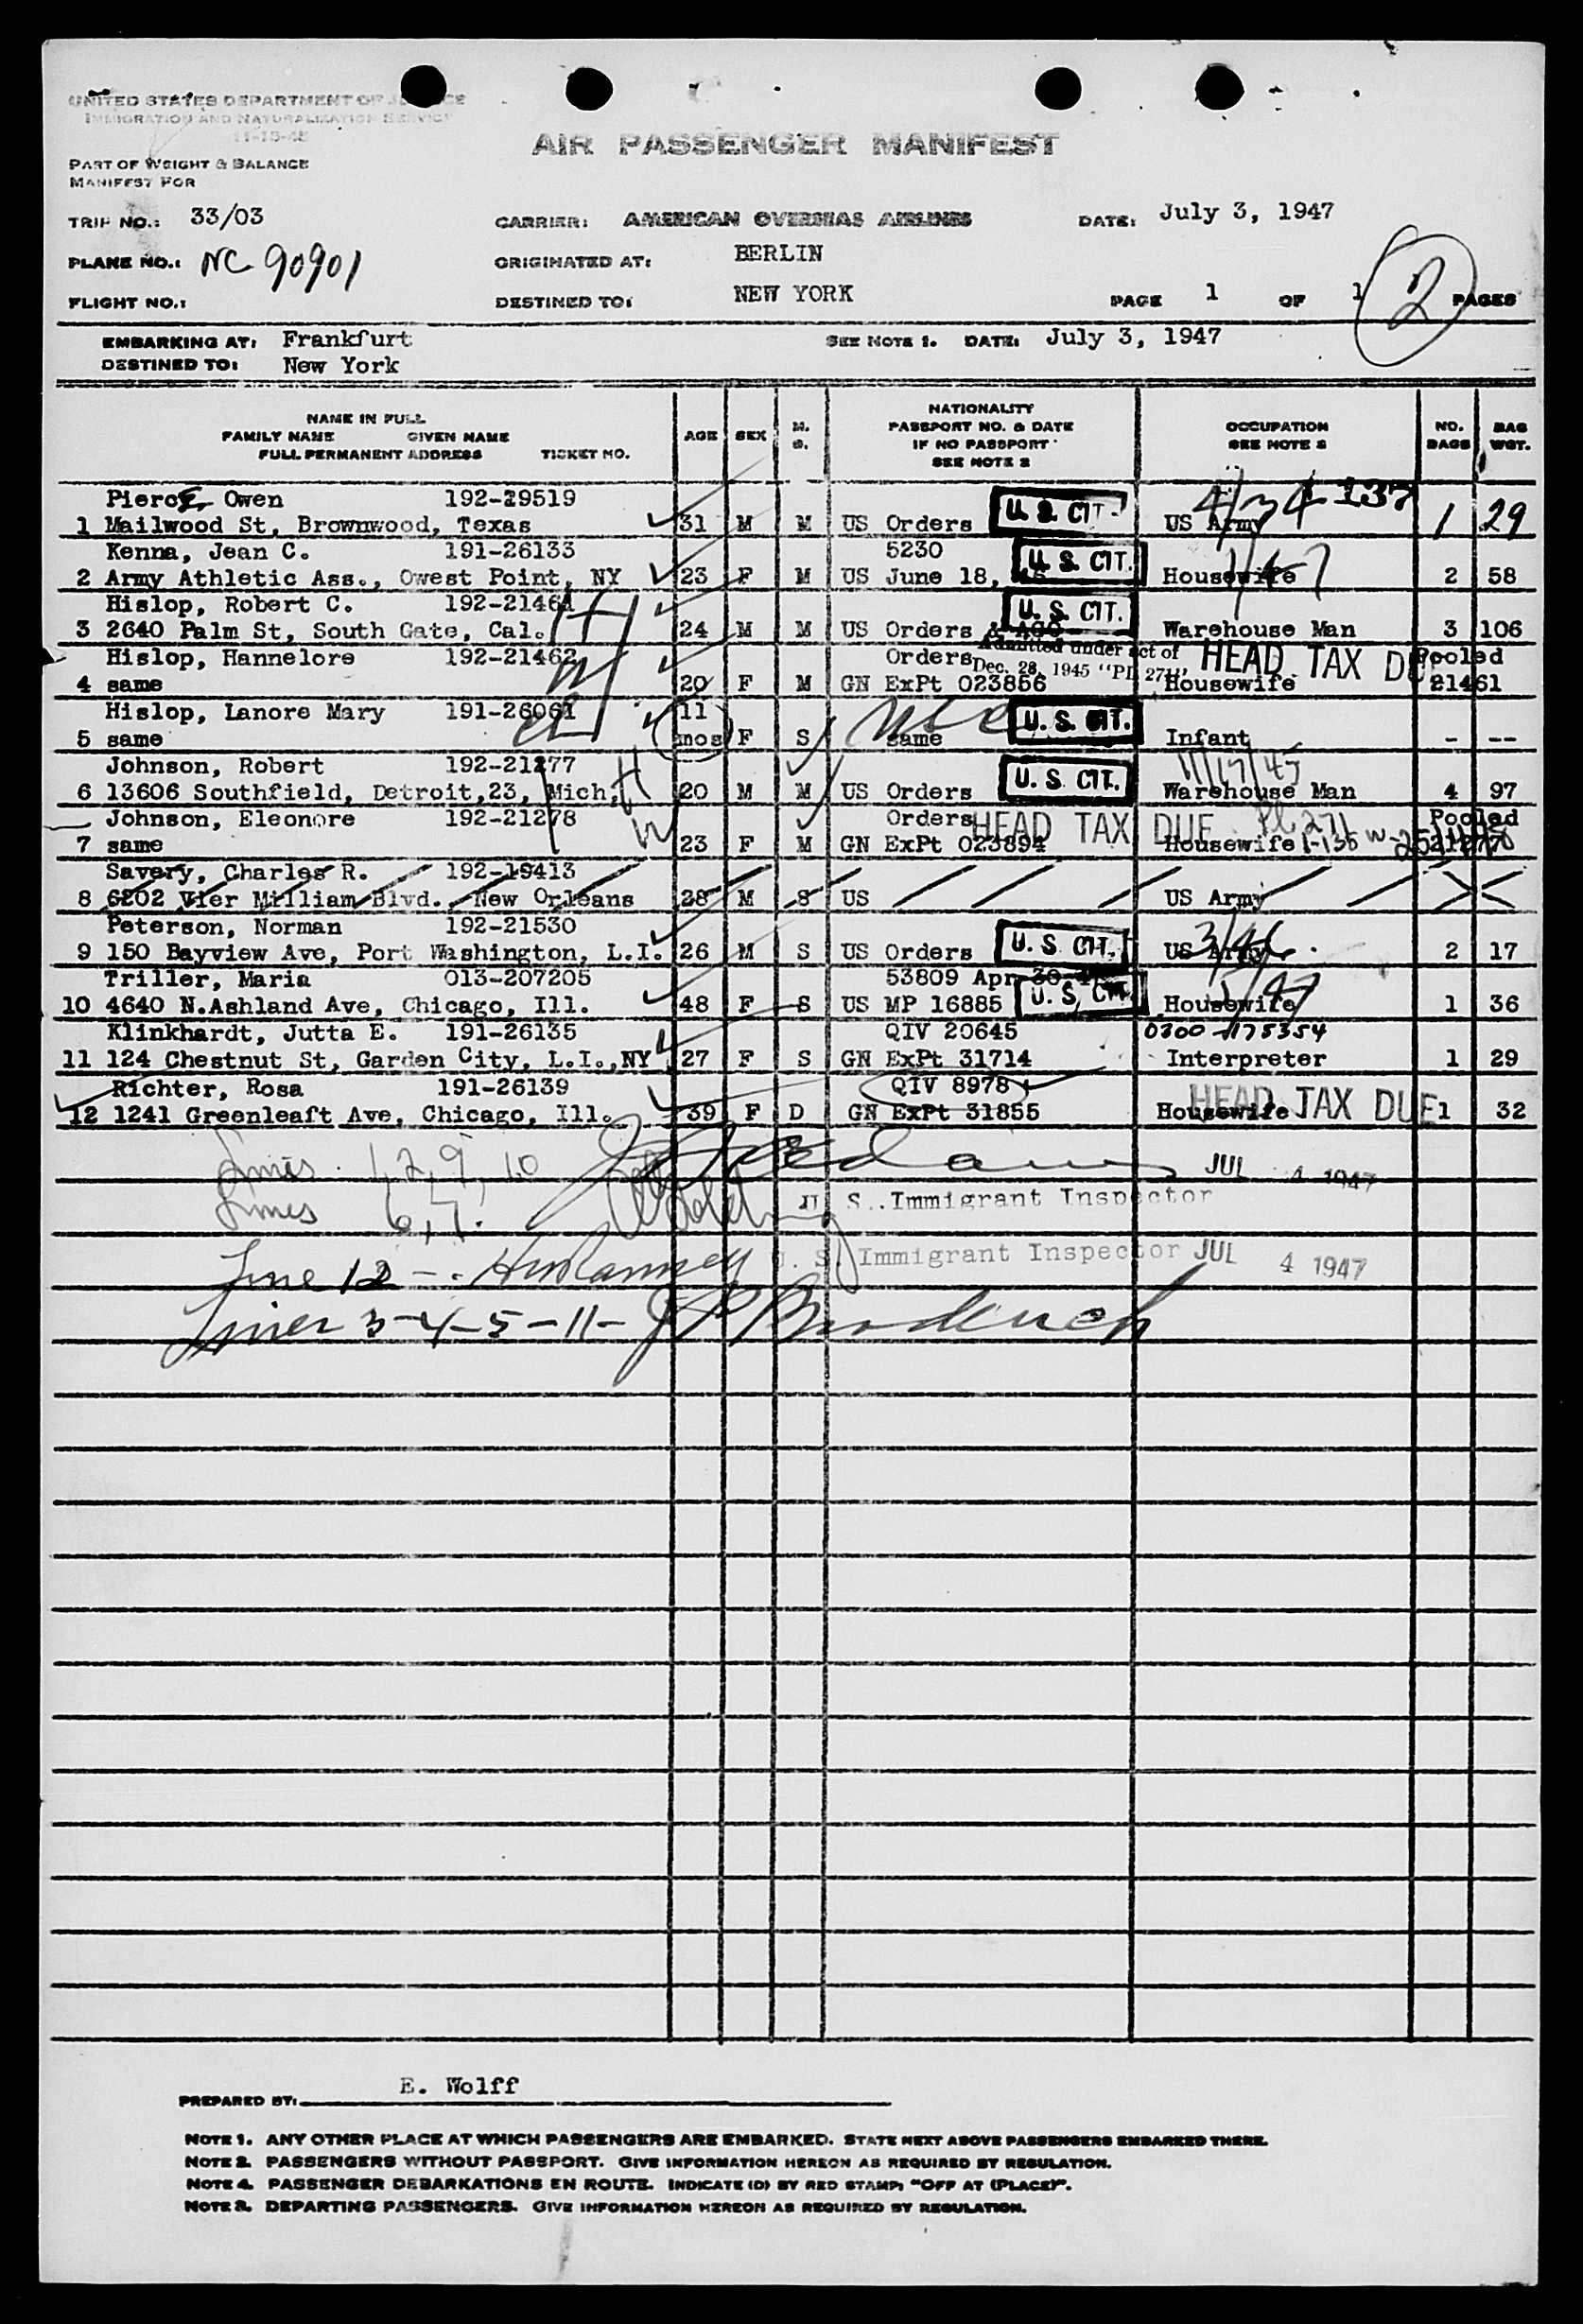 UNITED STATES DEPARTMENT OF JUSTICE
IMMIGRATION AND NATURALIZATION SERVICE
AIR PASSENGER MANIFEST
PART OF WEIGHT & BALANCE
MANIFEST FOR
TRIP NO.: 33/03 CARRIER: AMERICAN OVERSEAS AIRLINES DATE: July 3, 1947
PLANE NO.: NC 90901 ORIGINATED AT: BERLIN
FLIGHT NO.: DESTINED TO: NEW YORK PAGE 1 OF 1 2 PAGES
EMBARKING AT: Frankfurt SEE NOTE 1. DATE: July 3, 1947
DESTINED TO: New York
NAME IN FULL
FAMILY NAME GIVEN NAME
FULL PERMANENT ADDRESS TICKET NO.
AGE SEX M. S.
NATIONALITY
PASSPORT NO. & DATE
IF NO PASSPORT
SEE NOTE 2
OCCUPATION
SEE NOTE 2
NO. BAGS
BAG WGT.
Pierce, Owen 192-29519 4/34 137
1 Mailwood St, Brownwood, Texas 31 M M US Orders U. S. CIT. US Army 1 29
Kenna, Jean C. 191-26133 5230 U. S. CIT. 1/47
2 Army Athletic Ass., Owest Point, NY 23 F M US June 18, Housewife 2 58
Hislop, Robert C. 192-21461 U. S. CIT.
3 2640 Palm St, South Gate, Cal. 24 M M US Orders & AGO Warehouse Man 3 106
Hislop, Hannelore 192-21462 Orders Admitted under act of Dec. 28, 1945 "PL 271" HEAD TAX DUE Pooled
4 same 20 F M GN ExPt 023856 Housewife 21461
Hislop, Lanore Mary 191-26061 11 U. S. CIT.
5 same mos F S same Infant - --
Johnson, Robert 192-21277 U. S. CIT. 11/17/45
6 13606 Southfield, Detroit,23, Mich. 20 M M US Orders Warehouse Man 4 97
Johnson, Eleonore 192-21278 Orders HEAD TAX DUE PL 271 Pooled
7 same 23 F M GN ExPt 023894 Housewife 21277
Savery, Charles R. 192-19413
8 6202 Vier Milliam Blvd., New Orleans 28 M S US US Army
Peterson, Norman 192-21530 U. S. CIT. 3/46
9 150 Bayview Ave, Port Washington, L.I. 26 M S US Orders US Army 2 17
Triller, Maria 013-207205 53809 Apr 30, U. S. CIT. 5/47
10 4640 N.Ashland Ave, Chicago, Ill. 48 F S US MP 16885 Housewife 1 36
Klinkhardt, Jutta E. 191-26135 QIV 20645 0300-1175354
11 124 Chestnut St, Garden City, L.I.,NY 27 F S GN ExPt 31714 Interpreter 1 29
Richter, Rosa 191-26139 QIV 8978 HEAD TAX DUE
12 1241 Greenleaft Ave, Chicago, Ill. 39 F D GN ExPt 31855 Housewife 1 32
Lines 1, 2, 9, 10 JUL 4 1947
Lines 6, 7. U. S. Immigrant Inspector
Line 12 - U. S. Immigrant Inspector JUL 4 1947
Lines 3-4-5-11-
PREPARED BY: E. Wolff
NOTE 1. ANY OTHER PLACE AT WHICH PASSENGERS ARE EMBARKED. STATE NEXT ABOVE PASSENGERS EMBARKED THERE.
NOTE 2. PASSENGERS WITHOUT PASSPORT. GIVE INFORMATION HEREON AS REQUIRED BY REGULATION.
NOTE 4. PASSENGER DEBARKATIONS EN ROUTE. INDICATE (D) BY RED STAMP: "OFF AT (PLACE)".
NOTE 3. DEPARTING PASSENGERS. GIVE INFORMATION HEREON AS REQUIRED BY REGULATION.